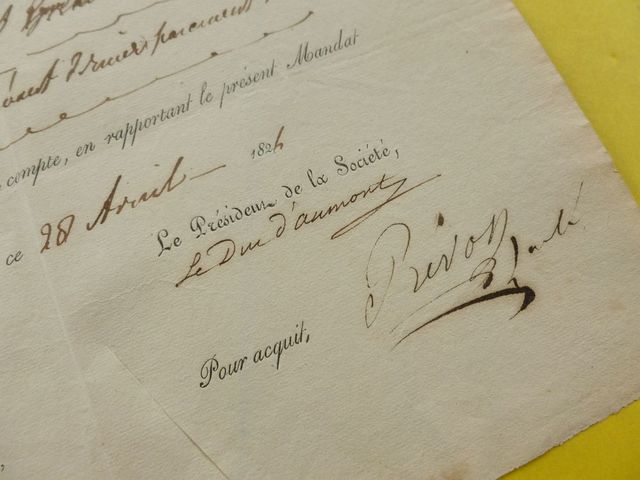 dernier paiement
compte, en rapportant le présent Mandat
ce 28 Avril 1826
Le Président de la Société,
Le Duc d'aumont
Prévost
Pour acquit,